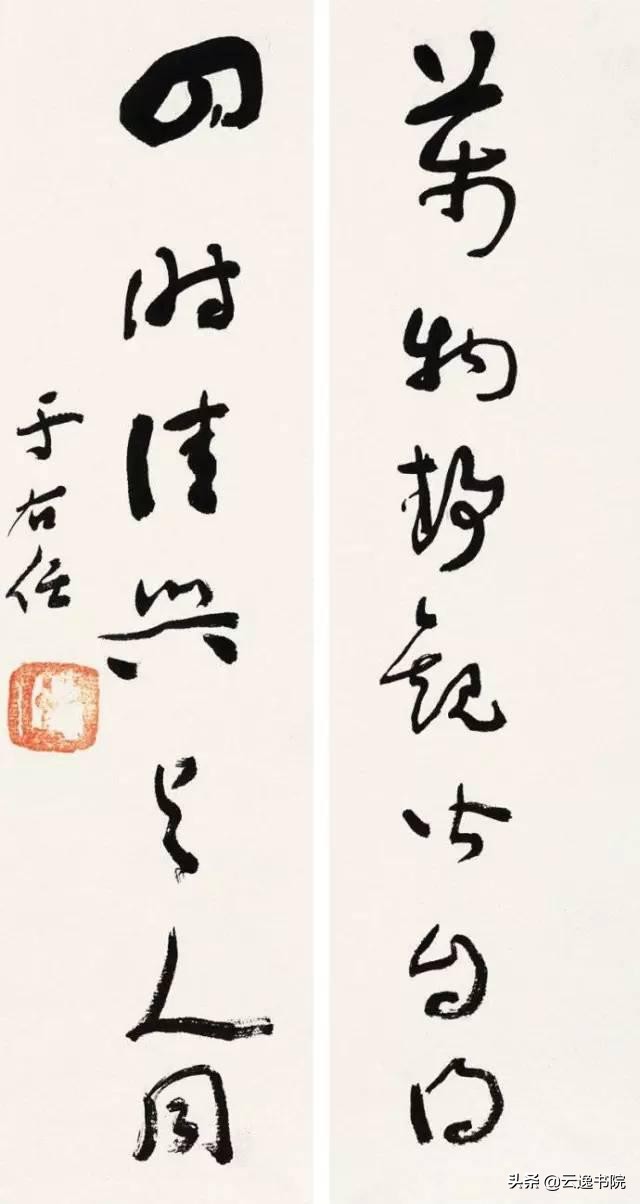 萬物靜觀皆自得
四時佳興與人同
于右任
头条 @云逸书院